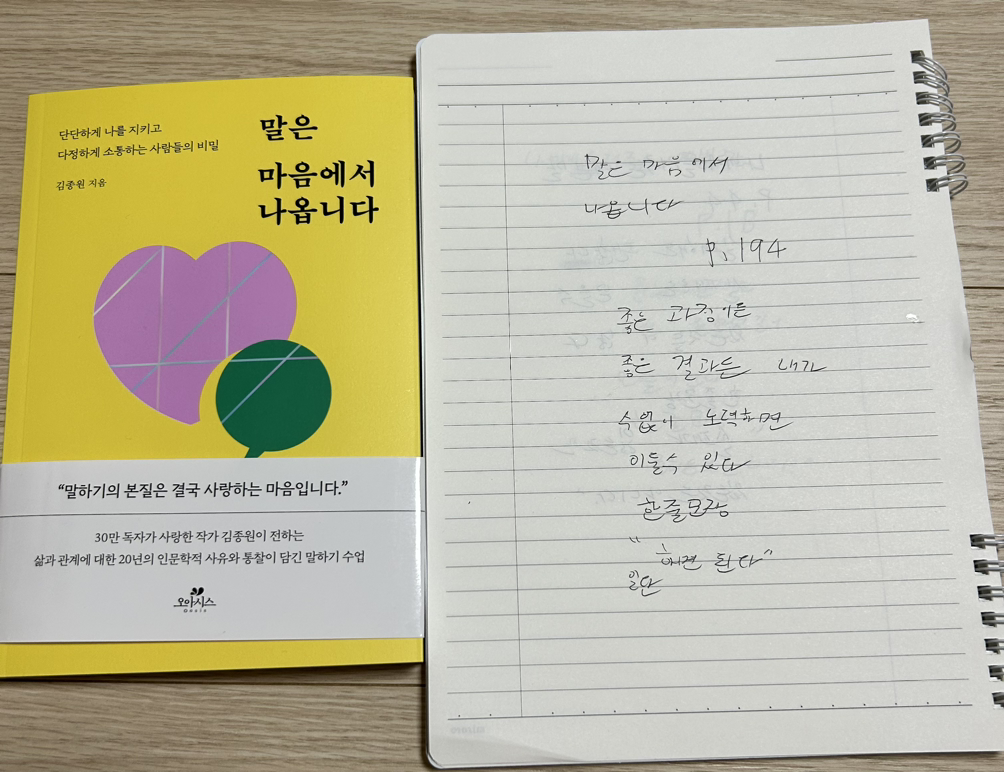 단단하게 나를 지키고
다정하게 소통하는 사람들의 비밀
김종원 지음
말은
마음에서
나옵니다
“말하기의 본질은 결국 사랑하는 마음입니다.”
30만 독자가 사랑한 작가 김종원이 전하는
삶과 관계에 대한 20년의 인문학적 사유와 통찰이 담긴 말하기 수업
오아시스
Oasis
말은 마음에서
나옵니다
p. 194
좋은 과정이든
좋은 결과든 내가
수없이 노력하면
이룰수 있다
한줄모장
" 하면 된다"
일단